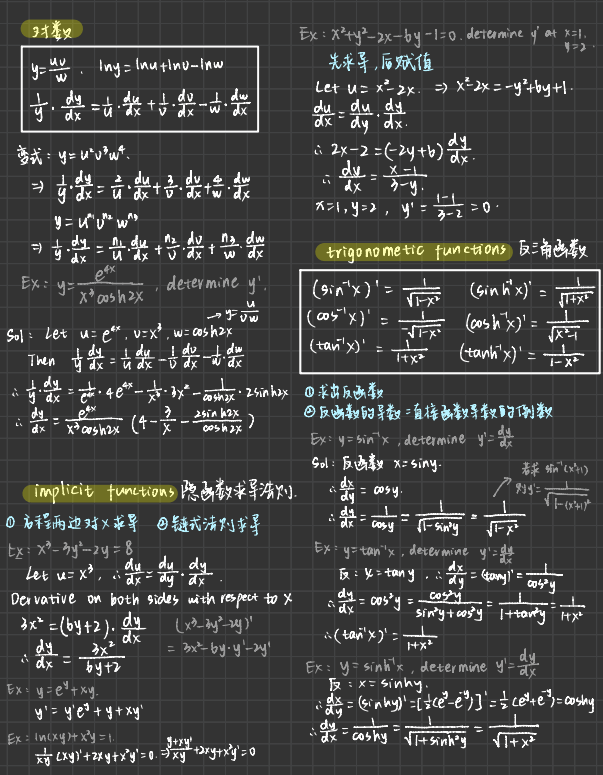 对数
y=uv/w . lny=lnu+lnv-lnw
1/y · dy/dx = 1/u · du/dx + 1/v · dv/dx - 1/w · dw/dx
变式: y=u²v³w⁴.
⇒ 1/y · dy/dx = 2/u · du/dx + 3/v · dv/dx + 4/w · dw/dx
y=u^n₁ v^n₂ w^n₃
⇒ 1/y · dy/dx = n₁/u · du/dx + n₂/v · dv/dx + n₃/w · dw/dx
Ex: y= e^4x / x³cosh2x , determine y'.
→ y= u/vw
Sol: Let u=e^4x, v=x³, w=cosh2x
Then 1/y dy/dx = 1/u du/dx - 1/v dv/dx - 1/w dw/dx
∴ 1/y · dy/dx = 1/e^4x · 4e^4x - 1/x³ · 3x² - 1/cosh2x · 2sinh2x
∴ dy/dx = e^4x / x³cosh2x (4 - 3/x - 2sinh2x/cosh2x)
implicit functions 隐函数求导法则.
① 方程两边对x求导 ②链式法则求导
Ex: x³-3y²-2y=8
Let u=x³, ∴ du/dx = du/dy · dy/dx .
Derivative on both sides with respect to x
3x²=(6y+2) · dy/dx (x³-3y²-2y)'
∴ dy/dx = 3x²/6y+2 = 3x²-6y·y'-2y'
Ex: y=e^y+xy.
y'=y'e^y+y+xy'
Ex: ln(xy)+x²y=1.
1/xy (xy)'+2xy+x²y'=0. ⇒ y+xy'/xy +2xy+x²y'=0
Ex: x²+y²-2x-6y-1=0, determine y' at x=1. y=2.
先求导,后赋值
Let u=x²-2x. ⇒ x²-2x=-y²+6y+1.
du/dx = du/dy · dy/dx.
∴ 2x-2=(-2y+6) dy/dx.
∴ dy/dx = x-1/3-y.
x=1, y=2, y' = 1-1/3-2 = 0.
trigonometic functions 反三角函数
(sin⁻¹x)' = 1/√1-x² (sinh⁻¹x)' = 1/√1+x²
(cos⁻¹x)' = 1/-√1-x² (cosh⁻¹x)' = 1/√x²-1
(tan⁻¹x)' = 1/1+x² (tanh⁻¹x)' = 1/1-x²
①求出反函数
②反函数的导数=直接函数导数的倒数
Ex: y=sin⁻¹x , determine y'= dy/dx
Sol: 反函数 x=siny.
若求 sin⁻¹(x²+1)
则y'= 1/√1-(x²+1)²
∴ dx/dy = cosy.
∴ dy/dx = 1/cosy = 1/√1-sin²y = 1/√1-x²
Ex: y=tan⁻¹x, determine y'= dy/dx
反: x=tany , ∴ dx/dy = (tany)' = 1/cos²y
∴ dy/dx = cos²y = cos²y/sin²y+cos²y = 1/1+tan²y = 1/1+x²
∴ (tan⁻¹x)' = 1/1+x²
Ex: y=sinh⁻¹x , determine y'= dy/dx
反: x=sinhy.
∴ dx/dy = (sinhy)' = [½(e^y-e^-y)]' = ½(e^y+e^-y)=coshy
∴ dy/dx = 1/coshy = 1/√1+sinh²y = 1/√1+x²